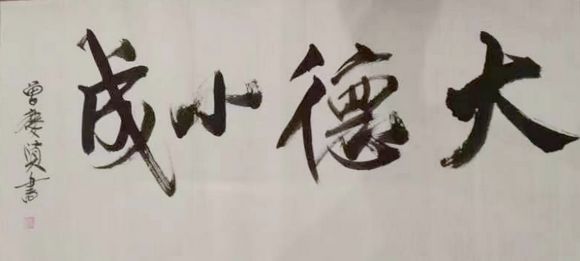 大德小成
曾庆贤书